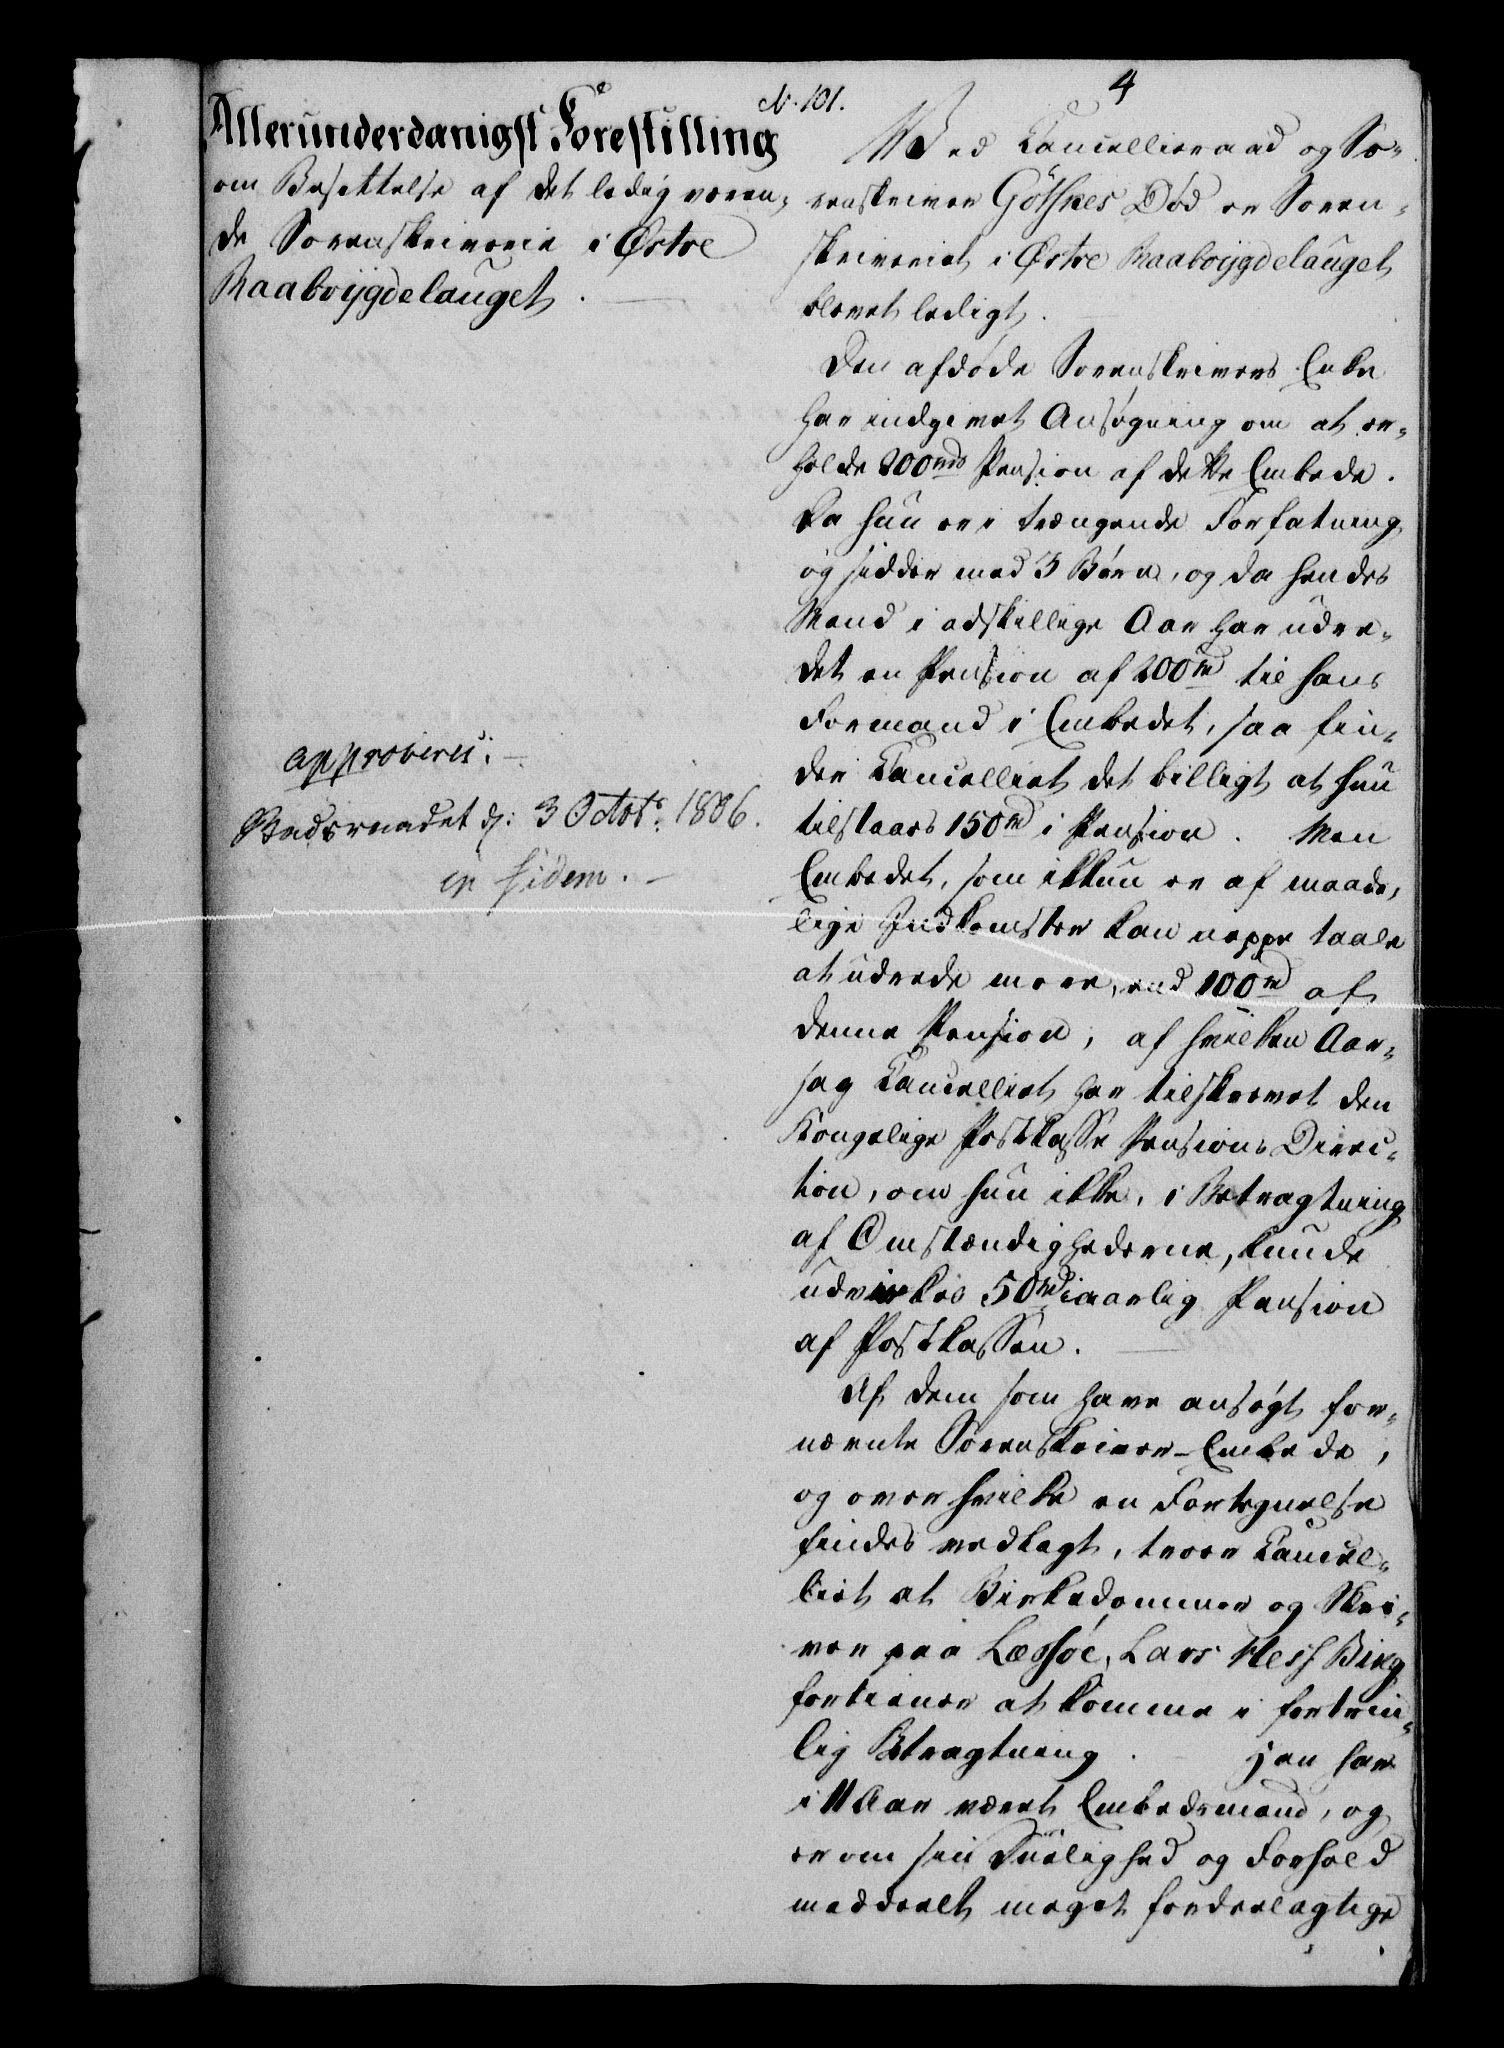 4
N. 101.
Allerunderdanigst Forestilling
om Besettelse af det ledig væren-
de Sorenskriverie i Østre
Raabøijgdelauget.
approberes:
Bedsvendet d: 3 Octobr 1806.
in fidem.
Ved Cancellieraad og So-
renskriver Götskes Död er Soren-
skriveriet i Østre Raabøijgdelauget
blevet ledigt.
Den afdöde Sorenskrivers Enke
har indgivet Ansögning om at er-
holde 200 rd Pension af dette Embede.
Da hun er i trængende Forfatning
og sidder med 3 Börn, og da hendes
Mand i adskillige Aar har udre-
det en Pension af 200 rd til hans
Formand i Embedet, saa fin-
der Cancelliet det billigt at hun
tilstaaes 150 rd i Pension. Men
Embedet, som ikkun er af maade-
lige Indkomster kan neppe taale
at udrede mere, end 100 rd af
denne Pension, af hvilken Aar-
sag Cancelliet har tilskrevet den
Kongelige Postkasse Pensions Direc-
tion, om hun ikke, i Betragtning
af Omstændighederne, kunde
udvirkes 50 rd i aarlig Pension
af Postkassen.
Af dem som have ansögt for-
nævnte Sorenskriver-Embede,
og over hvilke en Fortegnelse
findes vedlagt, troer Cancel-
liet at Birkedommer og Skri-
ver paa Læssöe, Lars Hess Bing
fortiener at komme i fortrin-
lig Betragtning. Han har
i 11 Aar været Embedsmand, og
er om sin Duelighed og Forhold
meddeelt meget fordeelagtige